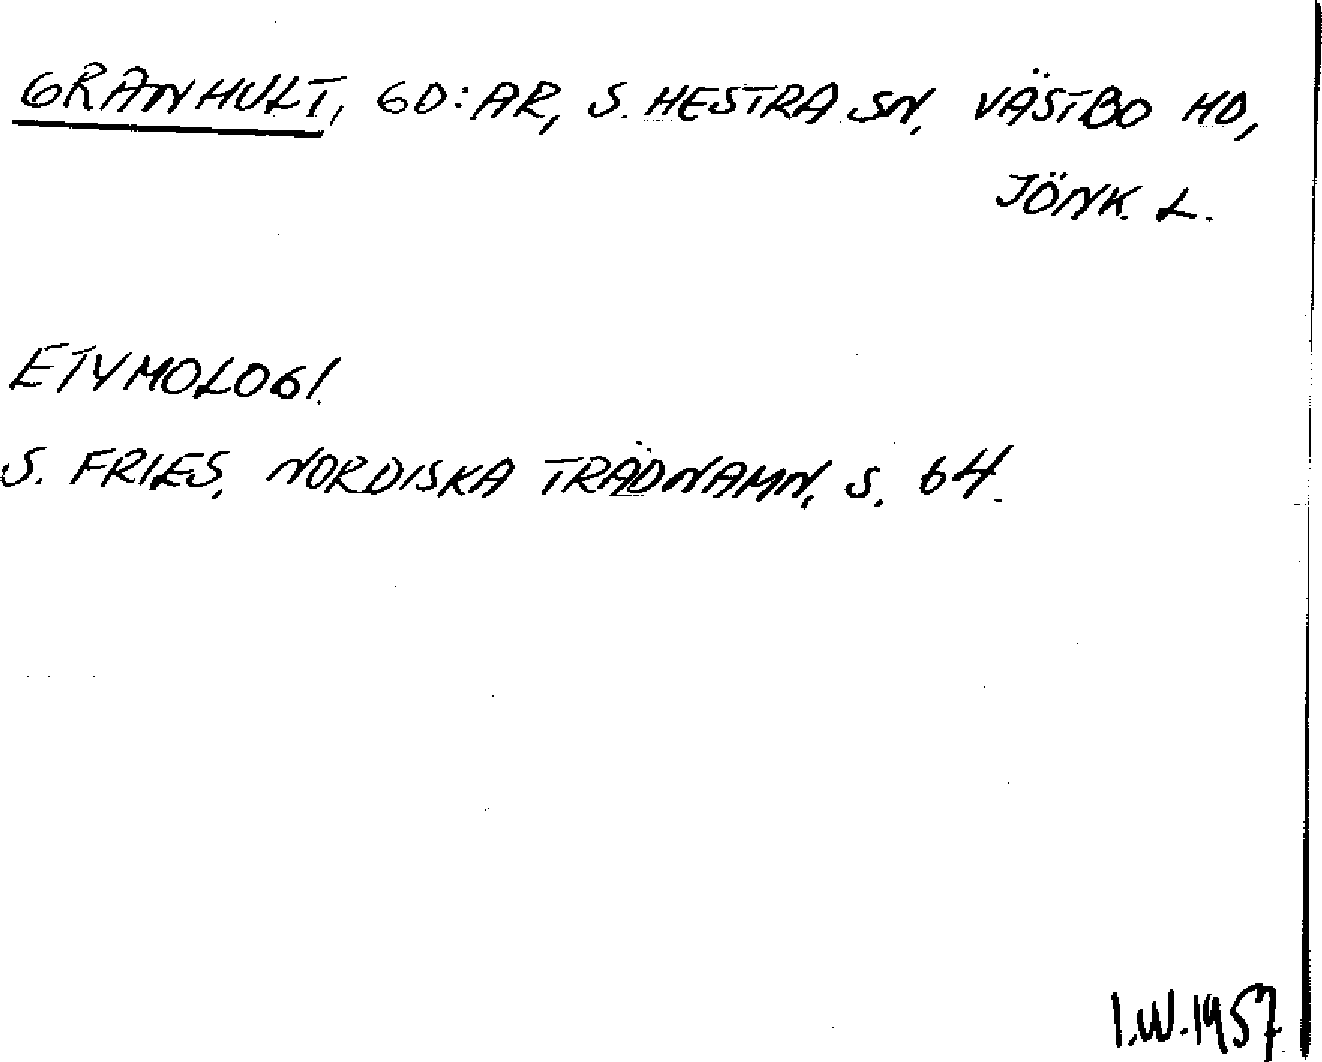 GRANHULT, GD:AR, S. HESTRA SN, VÄSTBO HD,
JÖNK. L.
ETYMOLOGI.
S. FRIES, NORDISKA TRÄDNAMN, S. 64.
I.W. 1957